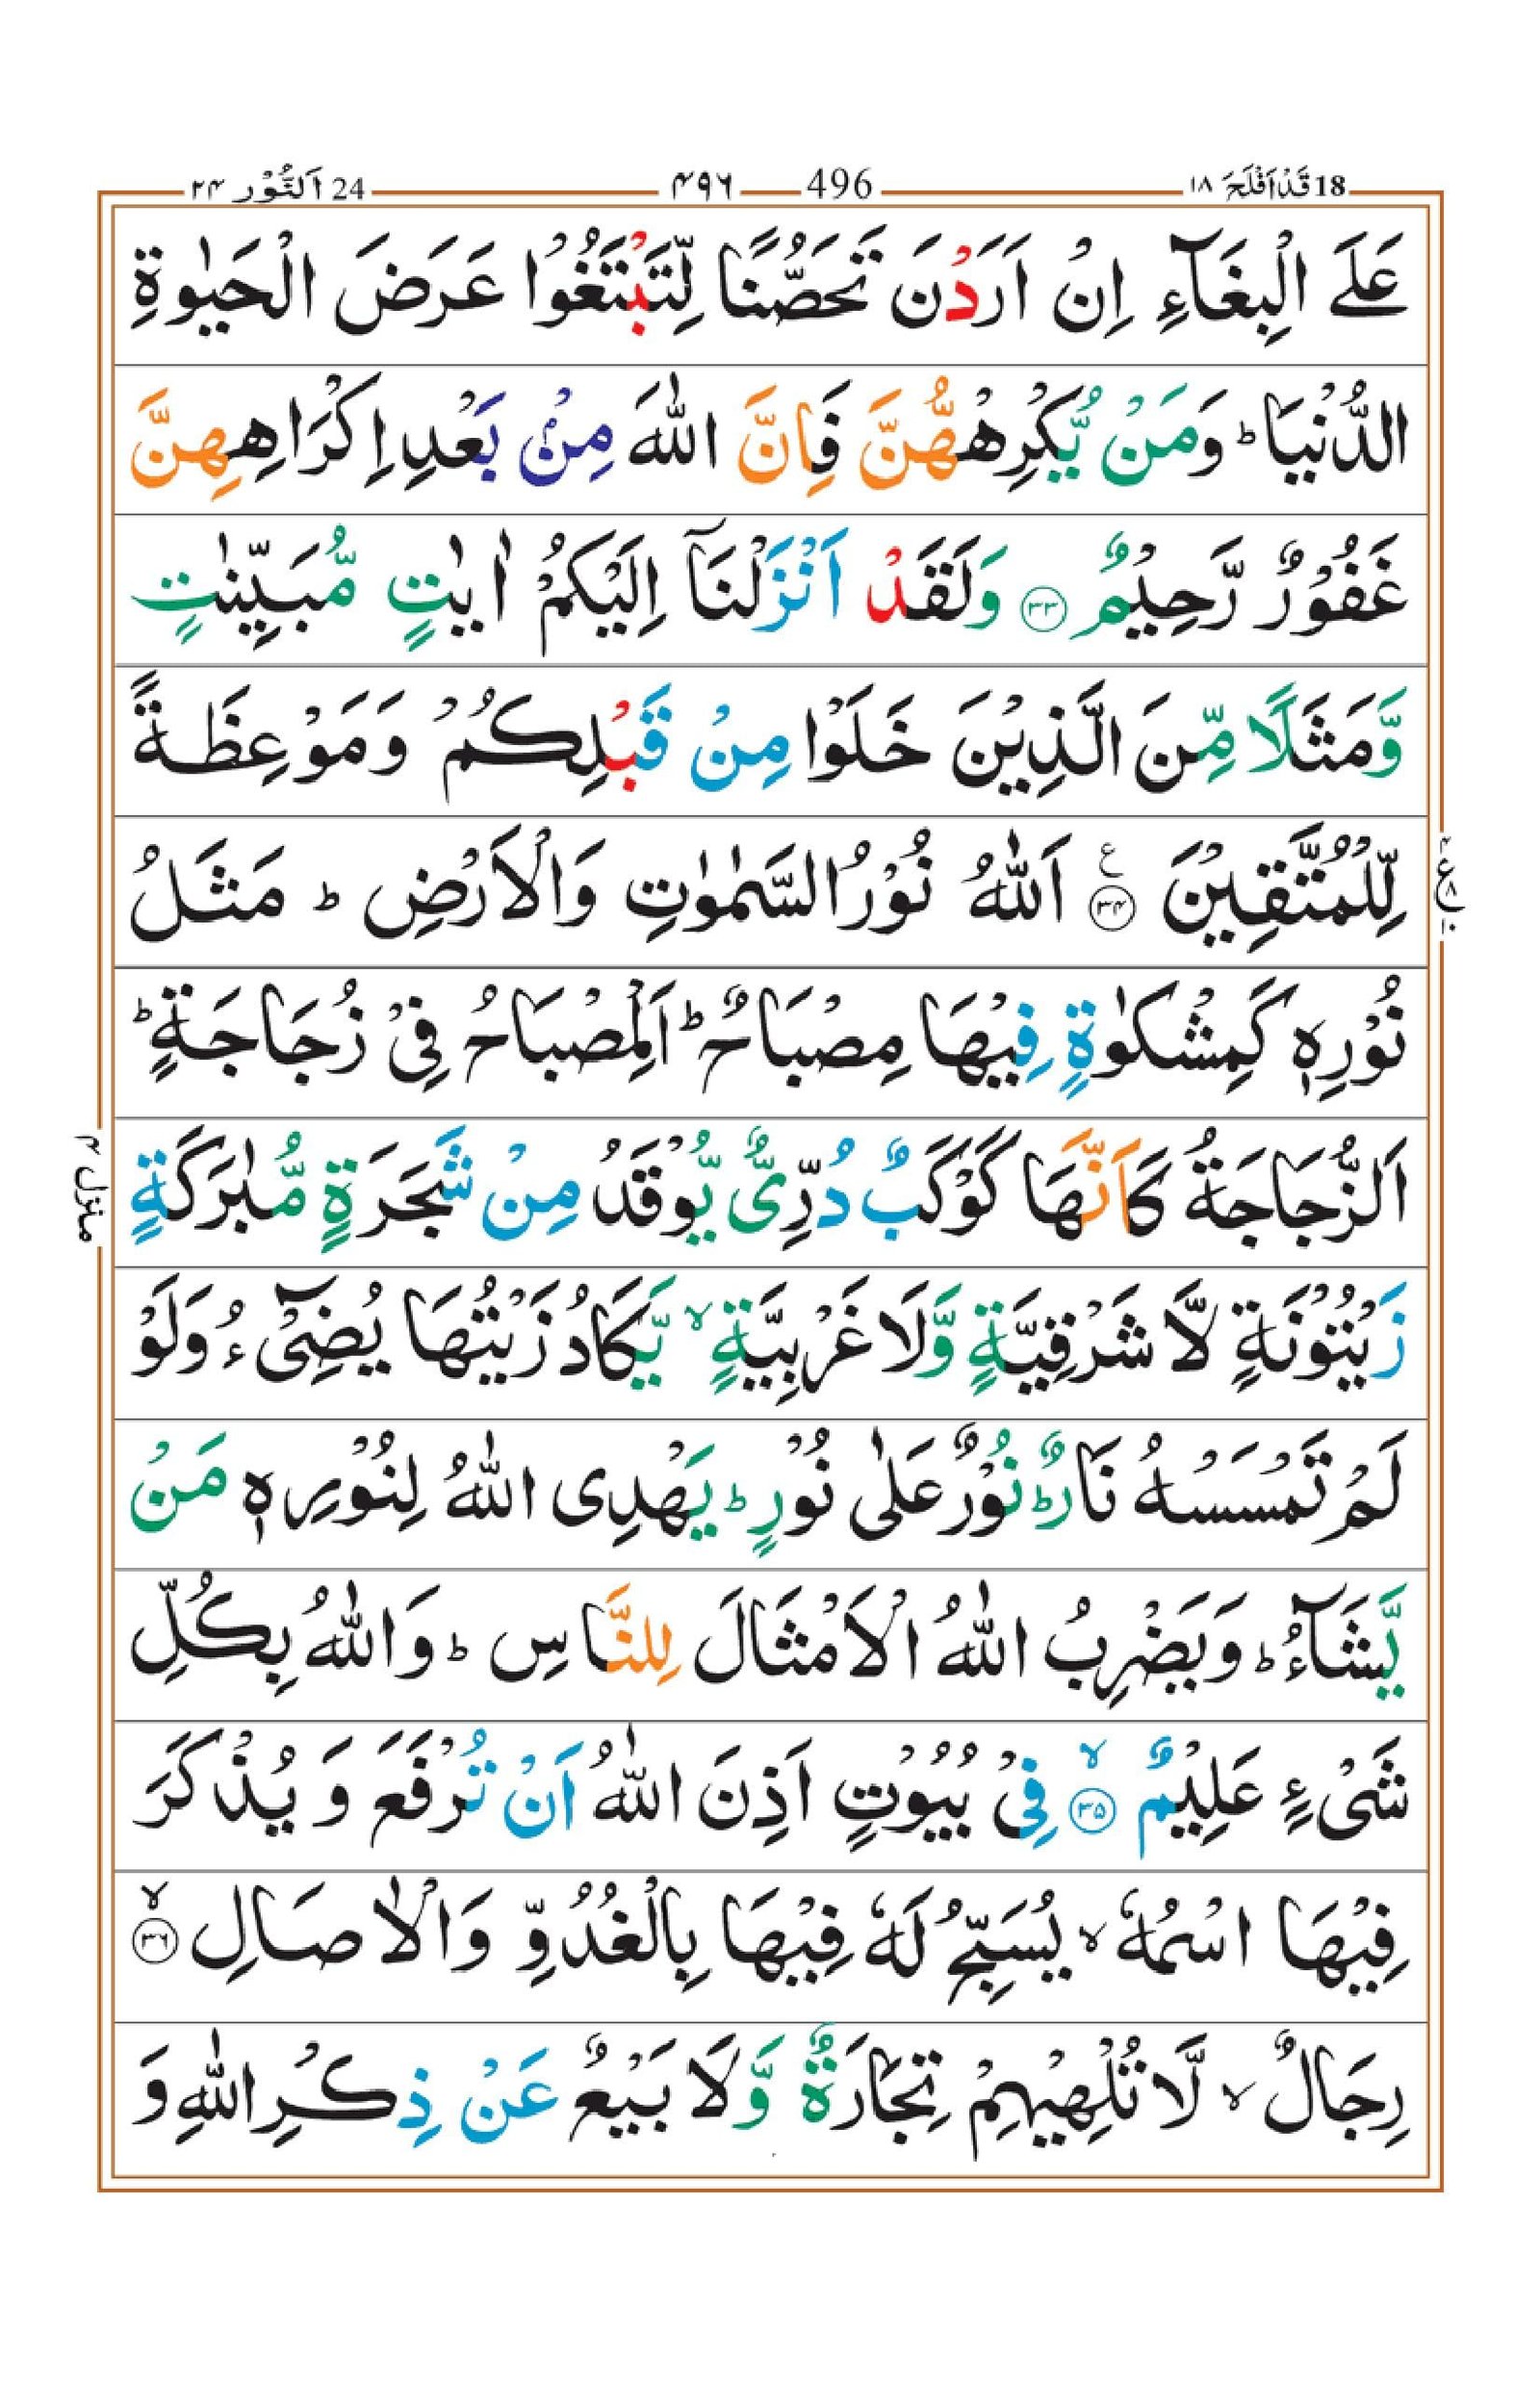 18 قَدْ اَفْلَحَ ١٨ 496 ۴۹۶ 24 اَلنُّوْر ۲۴
عَلَے الْبِغَآءِ اِنْ اَرَدْنَ تَحَصُّنًا لِّتَبْتَغُوْا عَرَضَ الْحَيٰوةِ
الدُّنْيَا ؕ وَمَنْ يُّكْرِهْهُّنَّ فَاِنَّ اللّٰهَ مِنْۢ بَعْدِ اِكْرَاهِهِنَّ
غَفُوْرٌ رَّحِيْمٌ ۳۳ وَلَقَدْ اَنْزَلْنَآ اِلَيْكُمْ اٰيٰتٍ مُّبَيِّنٰتٍ
وَّمَثَلًا مِّنَ الَّذِيْنَ خَلَوْا مِنْ قَبْلِكُمْ وَمَوْعِظَةً
لِّلْمُتَّقِيْنَ ۳۴ ع اَللّٰهُ نُوْرُ السَّمٰوٰتِ وَالْاَرْضِ ؕ مَثَلُ
نُوْرِهٖ كَمِشْكٰوةٍ فِيْهَا مِصْبَاحٌ ؕ اَلْمِصْبَاحُ فِيْ زُجَاجَةٍ ؕ
اَلزُّجَاجَةُ كَاَنَّهَا كَوْكَبٌ دُرِّىٌّ يُّوْقَدُ مِنْ شَجَرَةٍ مُّبٰرَكَةٍ
زَيْتُوْنَةٍ لَّا شَرْقِيَّةٍ وَّلَا غَرْبِيَّةٍ ۙ يَّكَادُ زَيْتُهَا يُضِىْٓءُ وَلَوْ
لَمْ تَمْسَسْهُ نَارٌ ؕ نُوْرٌ عَلٰى نُوْرٍ ؕ يَهْدِى اللّٰهُ لِنُوْرِهٖ مَنْ
يَّشَآءُ ؕ وَيَضْرِبُ اللّٰهُ الْاَمْثَالَ لِلنَّاسِ ؕ وَاللّٰهُ بِكُلِّ
شَىْءٍ عَلِيْمٌ ۙ ۳۵ فِيْ بُيُوْتٍ اَذِنَ اللّٰهُ اَنْ تُرْفَعَ وَ يُذْكَرَ
فِيْهَا اسْمُهٗ ۙ يُسَبِّحُ لَهٗ فِيْهَا بِالْغُدُوِّ وَالْاٰصَالِ ۙ ۳۶
رِجَالٌ ۙ لَّا تُلْهِيْهِمْ تِجَارَةٌ وَّلَا بَيْعٌ عَنْ ذِكْرِ اللّٰهِ وَ
منزل ۴